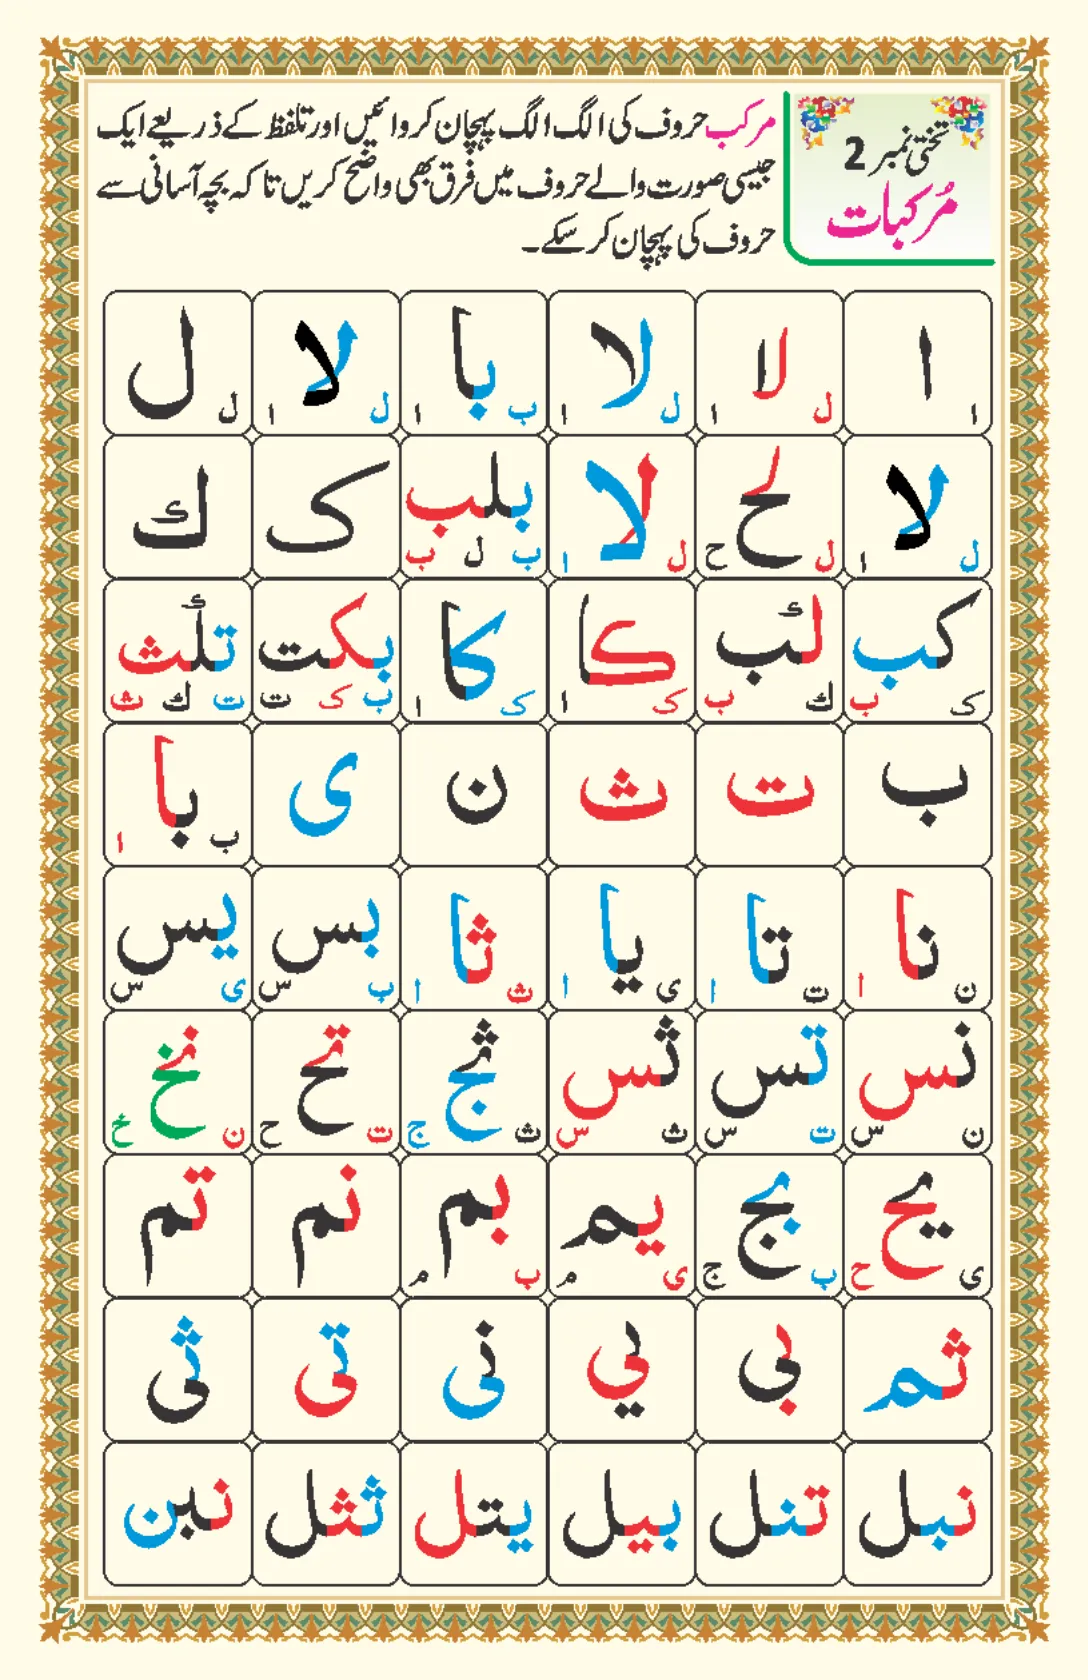 تختی نمبر 2
مُرکبات
مرکب حروف کی الگ الگ پہچان کروائیں اور تلفظ کے ذریعے ایک
جیسی صورت والے حروف میں فرق بھی واضح کریں تاکہ بچہ آسانی سے
حروف کی پہچان کر سکے۔
ا لا لا با لا ل
ا ل ا ل ا ب ا ل ا ل
لا لح لا بلب ک ك
ل ا ل ح ل ا ب ل ب
کب لكب کا کا بکت تلكث
ک ب ك ب ک ا ک ا ب ک ت ت ك ث
ب ت ث ن ی با
ب ا
نا تا یا ثا بس یس
ن ا ت ا ی ا ث ا ب س ی س
نس تس ثس ثج تح نخ
ن س ت س ث س ث ج ت ح ن خ
یح بج یم بم نم تم
ی ح ب ج ی م ب م
ثم بی یي نی تی ثی
نبل تنل بیل یتل ثثل نبن